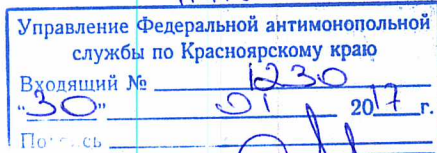 Управление Федеральной антимонопольной
службы по Красноярскому краю
Входящий № 1230
"30" 01 2017 г.
Подпись